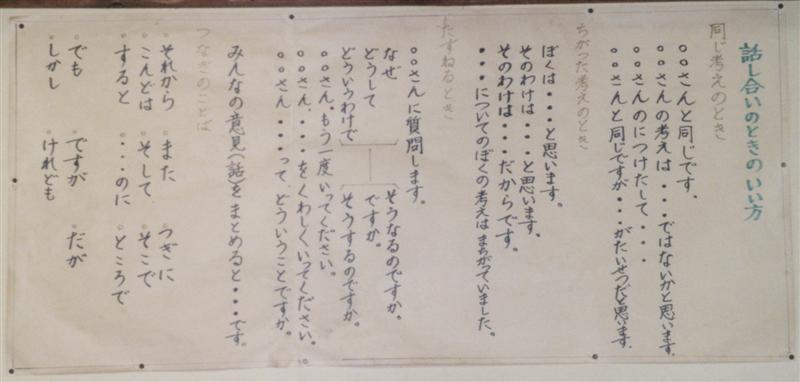 話し合いのときのいい方
同じ考えのとき
○○さんと同じです。
○○さんの考えは・・・ではないかと思います。
○○さんのにつけたして・・・
○○さんと同じですが・・・がたいせつだと思います。
ちがった考えのとき
ぼくは・・・と思います。
そのわけは・・・と思います。
そのわけは・・・だからです。
・・・についてのぼくの考えはまちがっていました。
たずねるとき
○○さんに質問します。
なぜ そうなるのですか。
どうして ですか。
どういうわけで そうするのですか。
○○さん、もう一度いってください。
○○さん、・・・をくわしくいってください。
○○さん・・・って、どういうことですか。
みんなの意見(話)をまとめると・・・です。
つなぎのことば
○それから ○また ○つぎに
○こんどは ○そして ○そこで
○すると ○・・・のに ○ところで
○でも ○ですが ○だが
○しかし ○けれども